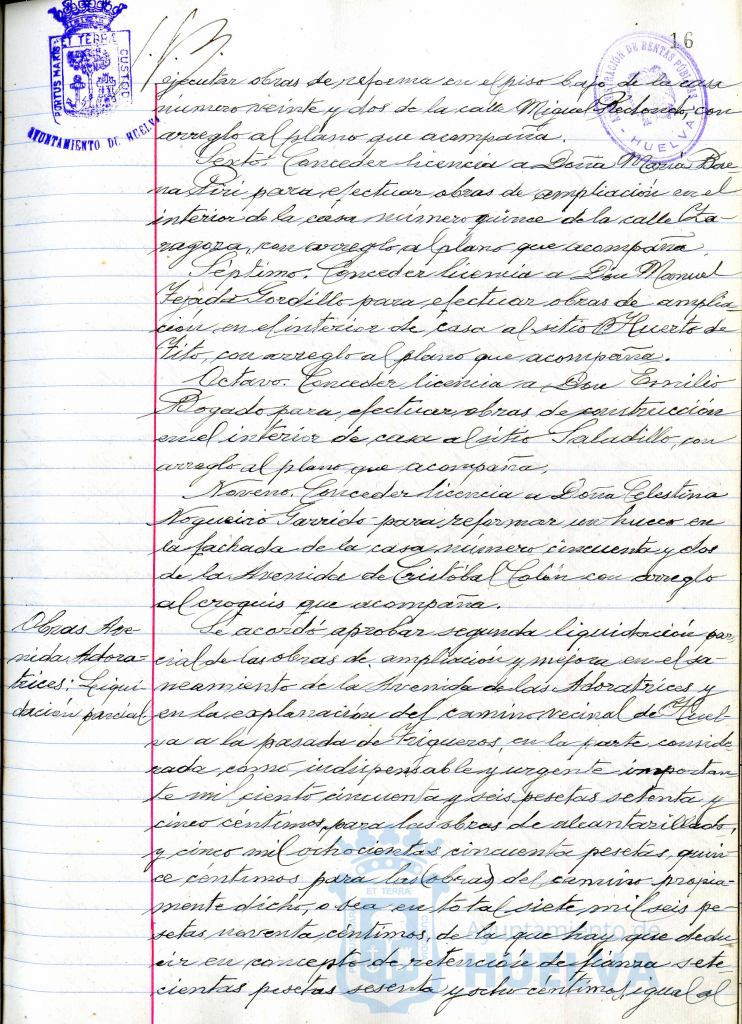 16
PORTUS MARIS ET TERRAE CUSTODIA
AYUNTAMIENTO DE HUELVA
ADMINISTRACIÓN DE RENTAS PÚBLICAS
- HUELVA -
ejecutar obras de reforma en el piso bajo de la casa
número veinte y dos de la calle Miguel Redondo, con
arreglo al plano que acompaña.
Sexto: Conceder licencia a Doña María Bae
na Piri para efectuar obras de ampliación en el
interior de la casa número quince de la calle Za-
ragoza, con arreglo al plano que acompaña.
Séptimo. Conceder licencia a Don Manuel
Tejada Gordillo para efectuar obras de amplia-
ción en el interior de casa al sitio Huerto de
Tito, con arreglo al plano que acompaña.
Octavo. Conceder licencia a Don Emilio
Bogado para efectuar obras de construcción
en el interior de casa al sitio Saladillo, con
arreglo al plano que acompaña.
Noveno. Conceder licencia a Doña Celestina
Nogueiro Garrido para reformar un hueco en
la fachada de la casa número cincuenta y dos
de la Avenida de Cristóbal Colón con arreglo
al croquis que acompaña.
Obras Ave-
nida Adora-
trices: Liqui-
dación parcial
Se acordó aprobar segunda liquidación par-
cial de las obras de ampliación y mejora en el sa-
neamiento de la Avenida de las Adoratrices y
en la explanación del camino vecinal de Huel-
va a la pasada de Trigueros, en la parte conside-
rada como indispensable y urgente importan-
te mil ciento cincuenta y seis pesetas setenta y
cinco céntimos para las obras de alcantarillado,
y cinco mil ochocientas cincuenta pesetas, quin-
ce centimos para las obras del camino propia-
mente dicho, o sea en total siete mil seis pe-
setas noventa céntimos, de la que hay que dedu-
cir en concepto de retención de fianza sete-
cientas pesetas sesenta y ocho centimos, igual al
Ayuntamiento de
HUELVA